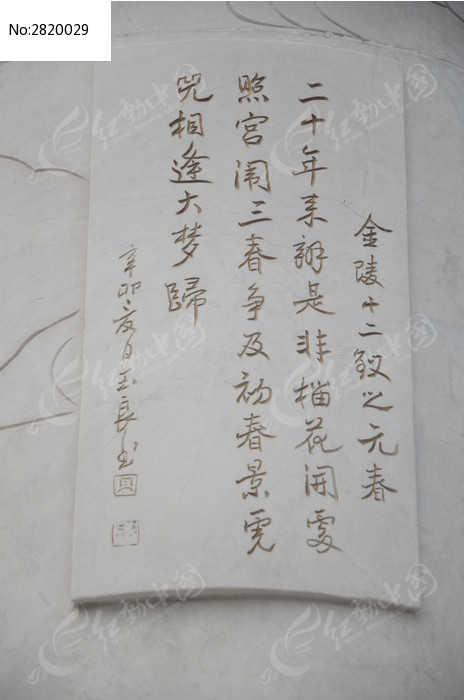 No:2820029
金陵十二釵之元春
二十年来辨是非榴花開處
照宫闱三春争及初春景虎
兕相逢大梦歸
辛卯夏日玉良书
红动中国